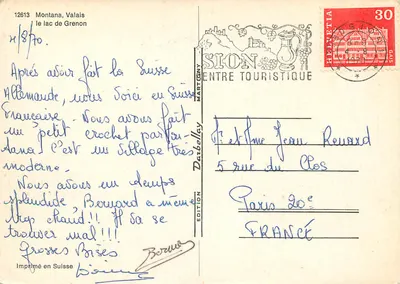 12613 Montana, Valais
le lac de Grenon
4/8/70.
Après avoir fait la Suisse
Allemande, nous voici en Suisse
Française. Nous avons fait
un petit crochet par Mon-
tana. C'est un village très
moderne.
Nous avons un temps
splendide, Bernard a même
trop chaud!! Il va se
trouver mal!!!
Grosses Bises
Bernard
Imprimé en Suisse
EDITION Darbellay MARTIGNY
SION
CENTRE TOURISTIQUE
HELVETIA
30
Mr et Mme Jean Renard
5 rue du Clos
Paris 20e
FRANCE